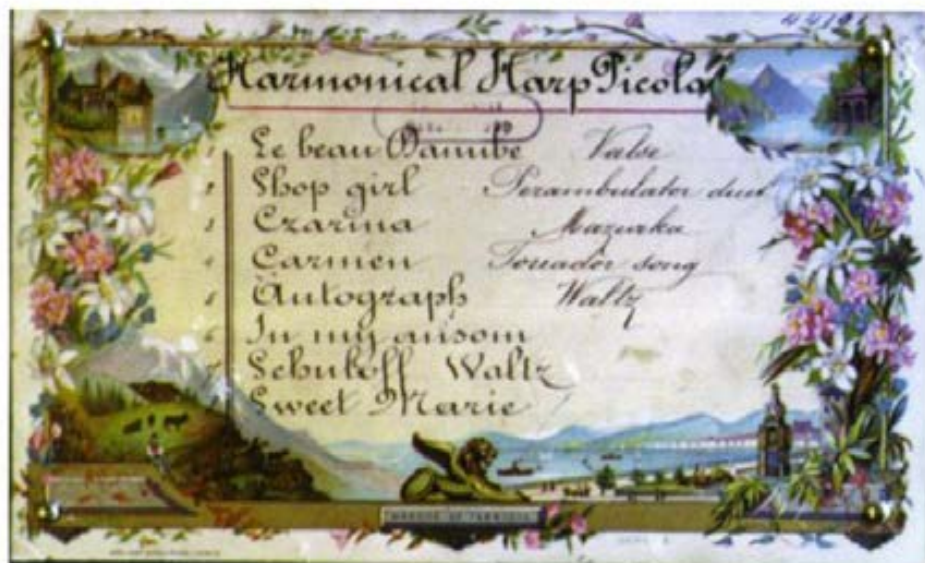 44191
Harmonical Harp Picolo
1 Le beau Danube Valse
2 Shop girl Perambulator duet
3 Czarina Mazurka
4 Carmen Toreador song
5 Autograph Waltz
6 In my ansom
7 Schukoff Waltz
Sweet Marie
MARQUE DE FABRIQUE